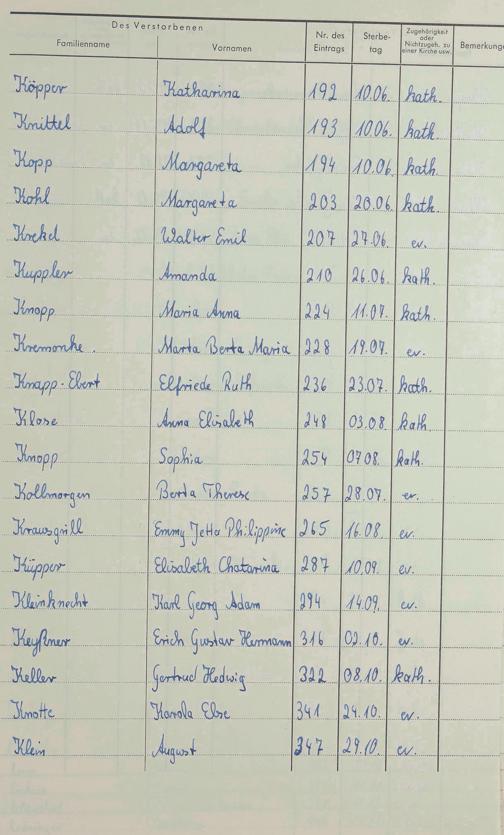 Des Verstorbenen
Familienname Vornamen Nr. des Eintrags Sterbe-tag Zugehörigkeit oder Nichtzugeh. zu einer Kirche usw. Bemerkunge
Köpper Katharina 192 10.06. kath.
Knittel Adolf 193 10.06. kath.
Kopp Margareta 194 10.06. kath.
Kohl Margareta 203 20.06. kath.
Krekel Walter Emil 207 27.06. ev.
Kuppler Amanda 210 26.06. kath.
Knopp Maria Anna 224 11.07. kath.
Kremonke. Marta Berta Maria 228 19.07. ev.
Knapp-Ebert Elfriede Ruth 236 23.07. kath.
Klose Anna Elisabeth 248 03.08. kath
Knopp Sophia 254 07 08. kath.
Kollmorgen Berta Therese 257 28.07. ev.
Krausgrill Emmy Jetta Philippine 265 16.08. ev.
Küpper Elisabeth Chatarina 287 10.09. ev.
Kleinknecht Karl Georg Adam 294 14.09. ev.
Keyßner Erich Gustav Hermann 316 02.10. ev.
Keller Gertrud Hedwig 322 08.10. kath.
Knotte Karola Else 341 24.10. ev.
Klein August 347 29.10. ev.